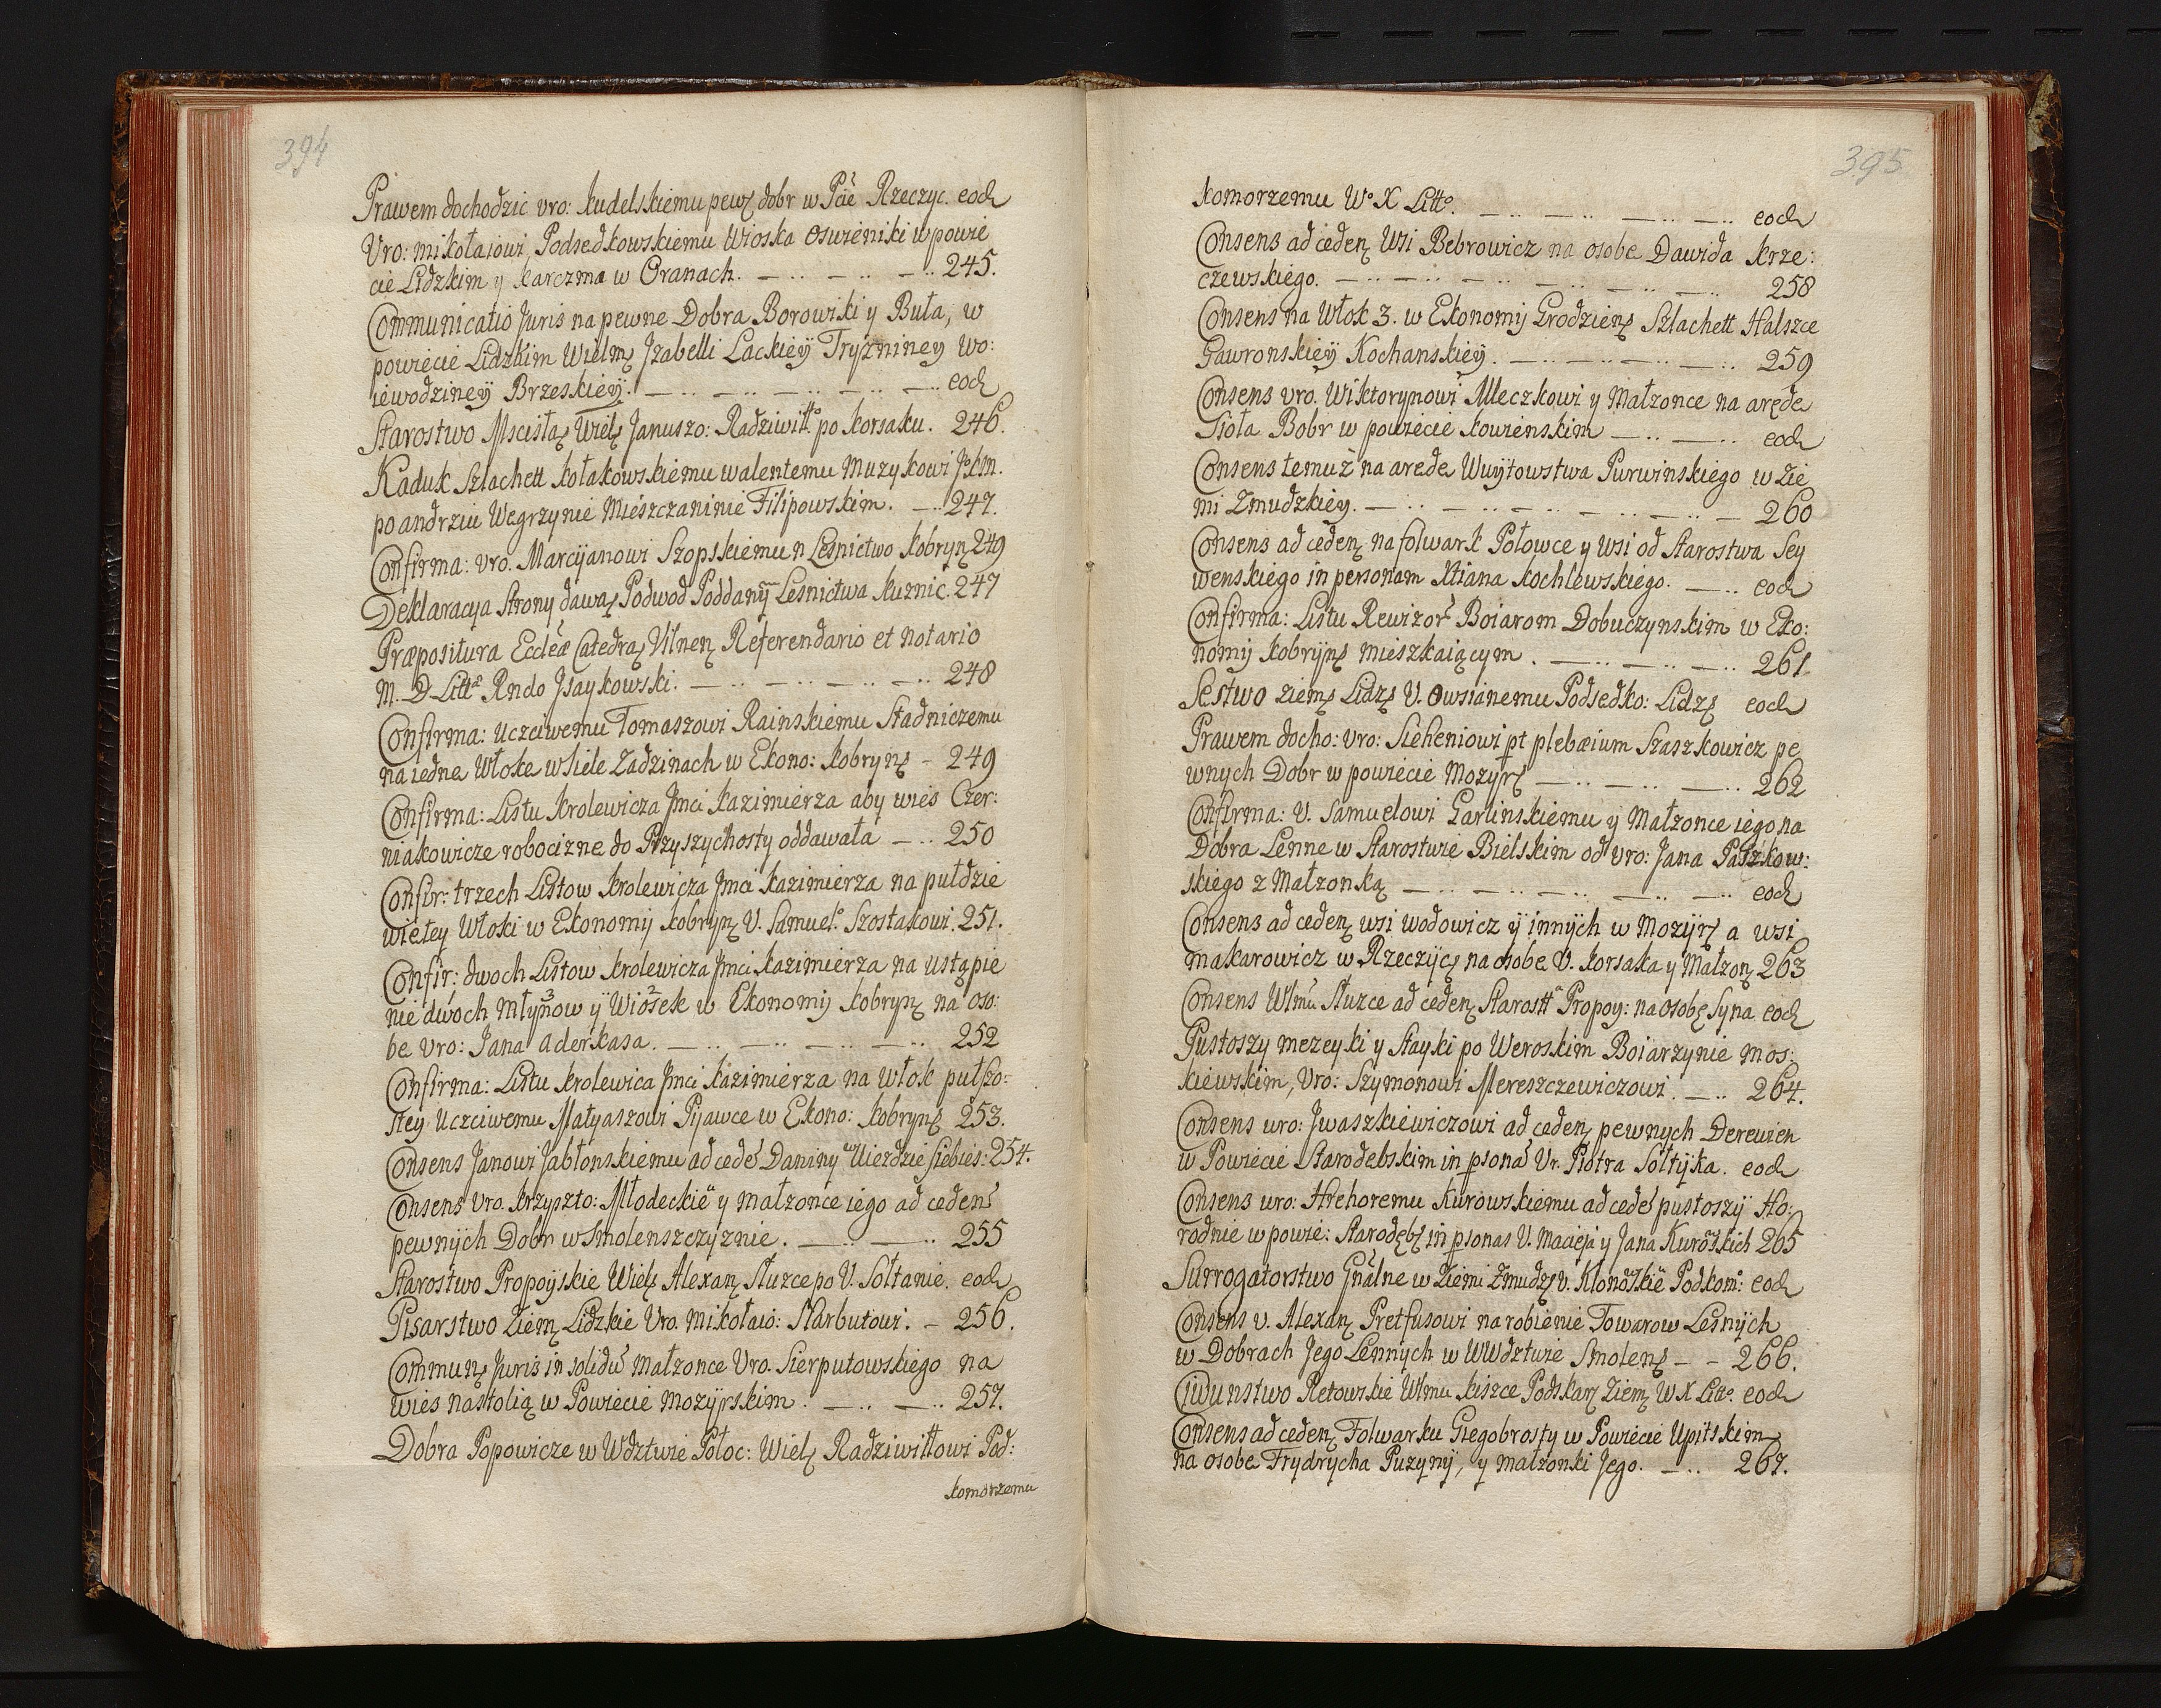 394
Prawem dochodzic vro: Kudelskiemu pewʒ dobr w Pcie Rzeczyc. eod
Vro: mikołaiowi Podsedkowskiemu Wioska Oswieniki w powie
cie Lidzkim y karczma w Oranach. — .. — .. — .. 245.
Communicatio Juris na pewne Dobra Borowiki y Buła, w
powiecie Lidzkim Wielmʒ Jzabelli Lackieÿ Tryzniney Wo:
iewodzineÿ Brzeskieÿ. — .. — .. — .. — .. — .. eod
Starostwo Mscisłaʒ Wielʒ Januszo: Radziwiłł: po Korsaku. 246.
Kaduk Szlachett Kołakowskiemu walentemu Muzykowi JKM.
po andrzeiu Węgrzynie Mieszczaninie Filipowskim. — .. 247.
Confirma: vro. Marcÿanowi Szopskiemu n Lesnictwo Kobrynʒ 249
Deklaracya strony dawaʒ Podwod Poddany Lesnictwa Kuznic. 247
Præpositura Eccleæ Catedraʒ Vilnenʒ Referendario et notario
M. D Litt.ͣ Rndo Jsaykowski. — .. — .. — .. — .. 248
Confirma: Uczciwemu Tomaszowi Rainskiemu Stadniczemu
na iedne Włoke w siele Zadzinach w Ekono: Kobrynʒ – 249
Confirma: Listu Krolewicza Jmci Kazimierza aby wies Czer:
niakowicze robocizne do Przyszychosty oddawała — .. 250
Confir: trzech Listow Krolewicza Jmci Kazimierza na pułdzie
więtey Włoki w Ekonomij Kobrynʒ V. Samuel: Szostakowi. 251.
Confir: dwoch Listow Krolewicza Jmci Kazimierza na ustąpie
nie dwóch Młynow y Wiosek w Ekonomij Kobrynʒ na oso:
be vro: Jana aderkasa. — .. — .. — .. — .. 252
Confirma: Listu Krolewica Jmci Kazimierza na Włok pułszo:
stey Uczciwemu Matyaszowi Pijawce w Ekono: Kobrynʒ 253.
Consens Janowi Jabłonskiemu ad cedē Daniny w Uiezdzie siebies: 254.
Consens Vro. Krzyszto: Młodeckiē y małzonce iego ad cedenʒ
pewnÿch Dobr w Smolenszczyznie. — .. — .. 255
Starostwo Propoÿskie Wielʒ Alexanʒ Słuzce po V. Sołtanie. eod
Pisarstwo Ziemʒ Lidzkie Vro. Mikołaio: Narbutowi. – 256.
Communʒ Juris in solidū małzonce Vro. Sierputowskiego na
wies nastolią w Powiecie mozÿrskim. — .. — .. 257.
Dobra Popowicze w Wdztwie Połoc: Wielʒ Radziwiłłowi Pod:
komorzemu
395
komorzemu W.º X Litt.º — .. — .. — .. — .. eod
Consens ad cedenʒ Wsi Bebrowicz na osobe Dawida Krze:
czewskiego. — .. — .. — .. — .. — .. — .. 258
Consens na Włok 3. w Ekonomij Grodzienʒ Szlachett Halszce
Gawronskieÿ Kochanskieÿ. — .. — .. — .. — .. 259
Consens vro. Wiktorynowi Mleczkowi y Małzonce na aręde
Sioła Bobr w powiecie kowienskim — .. — .. eod
Consens temuż na arede Wuÿtowstwa Purwinskiego w Zie
mi Zmudzkiey. — .. — .. — .. — .. — .. — 260
Consens ad cedenʒ na folwark Połowce y Wsi od Starostwa Sey
wenskiego in personam Xtiana Kochlewskiego. — .. eod
Confirma: Listu Rewizor Boiarom Dobuczynskim w Eko:
nomij Kobrÿnʒ mieszkaiącym. — .. — .. — .. 261.
Sęstwo ziemʒ Lidzʒ V. Owsianemu Podsedko: Lidzʒ eod
Prawem docho: vro: Sieheniowi pt plebæium Szaszkowicz pe
wnych Dobr w powiecie Mozyrʒ — .. — .. — .. 262
Confirma: V. Samuelowi Garlinskiemu y Małzonce iego na
Dobra Lenne w Starostwie Bielskim od vro: Jana Paszkow:
skiego z Małzonką — .. — .. — .. — .. — .. eod
Consens ad cedenʒ wsi wodowicz ÿ innÿch w Mozÿrʒ a wsi
makarowicz w Rzeczÿcʒ na osobe V. Korsaka y Małzonʒ 263
Consens Wlmū Słuzce ad cedenʒ Starostt Propoy: na osobę syna eod
Pustoszy mezeyki y stayki po Weroskim Boiarzynie mos:
kiewskim, Vro: Szymonowi Mereszczewiczowi. — .. 264.
Consens uro: Jwaszkiewiczowi ad cedenʒ pewnych Derewien
w Powiecie Starodebskim in psonā Vr. Piotra Sołtÿka. eod
Consens uro: Hrehoremu Kurowskiemu ad cedē pustoszÿ Ho:
rodnie w powie: Starodębʒ in psonas V. Macieja y Jana Kurowskich 265
Surrogatorstwo Gnālne w Ziemi Zmudzʒ V. Klonowskiē Podkom: eod
Consens v. Alexanʒ Pretfusowi na robienie Towarow Lesnÿch
w Dobrach Jego Lennych w WWdztwie Smolenʒ – – 266.
Ciwunstwo Retowskie Wlmu Kiszce Podskarʒ Ziemʒ W X Litt.º eod
Consens ad cedenʒ Folwarku Giegobrosty w Powiecie Upitskim
na osobe Frydrycha Puzynÿ, y małzonki Jego. — .. 267.